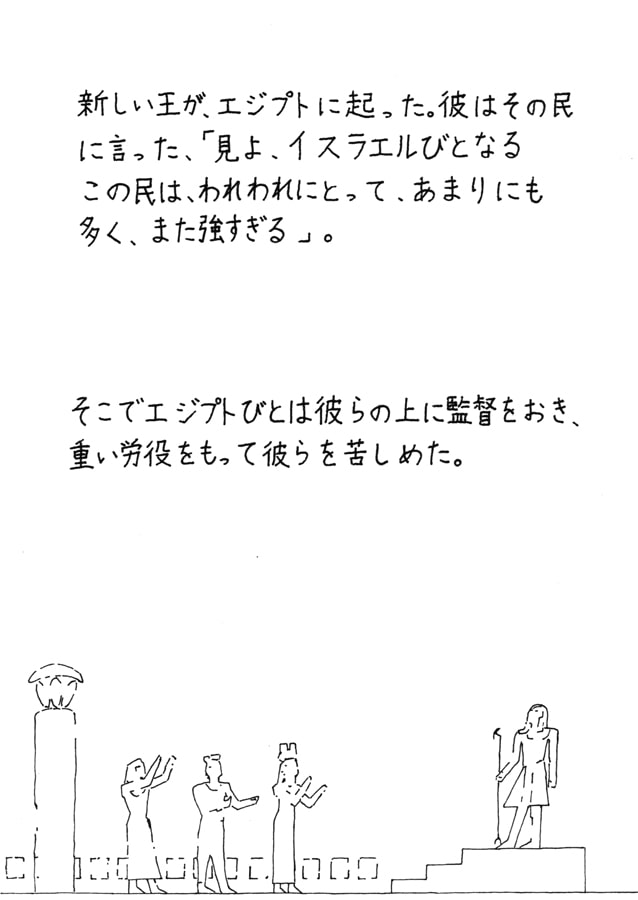 新しい王が、エジプトに起った。彼はその民
に言った、「見よ、イスラエルびとなる
この民は、われわれにとって、あまりにも
多く、また強すぎる」。
そこでエジプトびとは彼らの上に監督をおき、
重い労役をもって彼らを苦しめた。